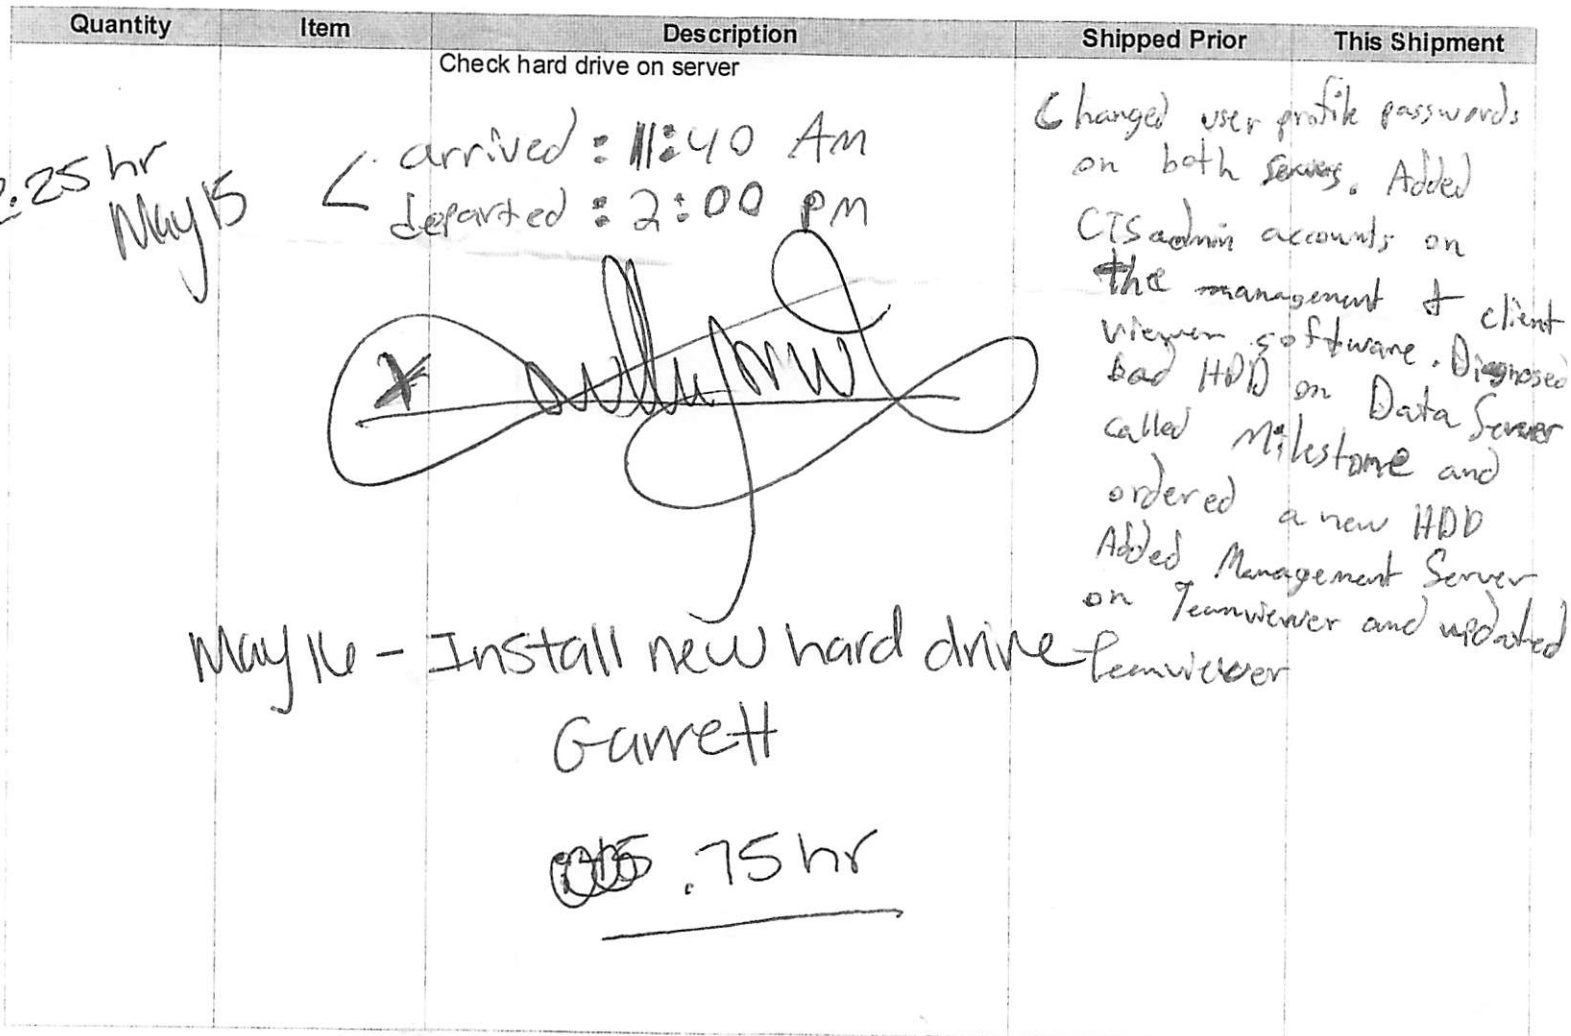 Quantity Item Description Shipped Prior This Shipment
Check hard drive on server
.25 hr
May 15
arrived : 11:40 AM
departed : 2:00 PM
X
Changed user profile passwords
on both servers. Added
CTSadmin accounts on
the management & client
viewer software. Diagnosed
bad HDD on Data Server
called Milestone and
ordered a new HDD
Added Management Server
on Teamviewer and updated
Teamviewer
May 16 - Install new hard drive
Garrett
.75 hr